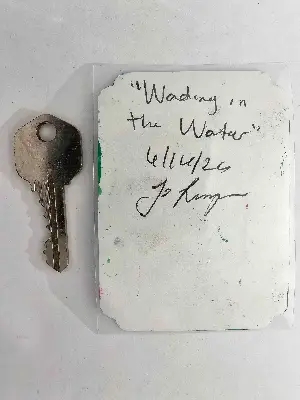 "Wading in
the Water"
6/16/20